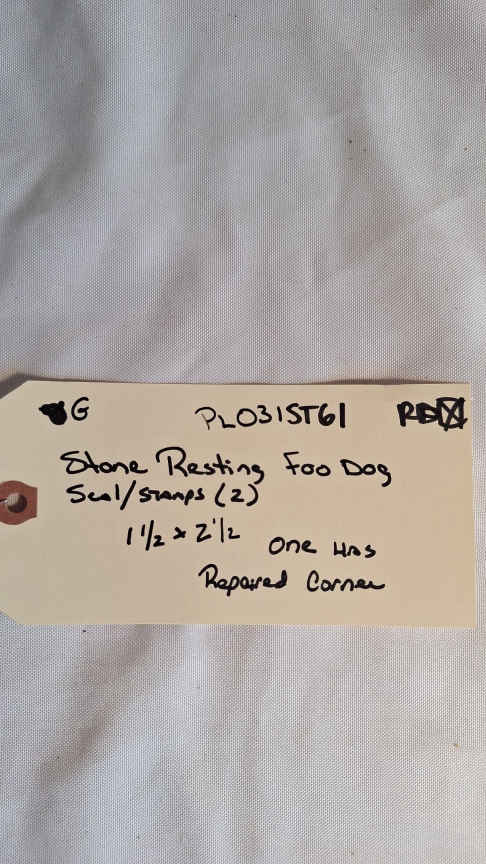 G PL031ST61
Stone Resting Foo Dog
Seal/Stamps (2)
1 1/2 x 2 1/2 One Has
Repaired Corner